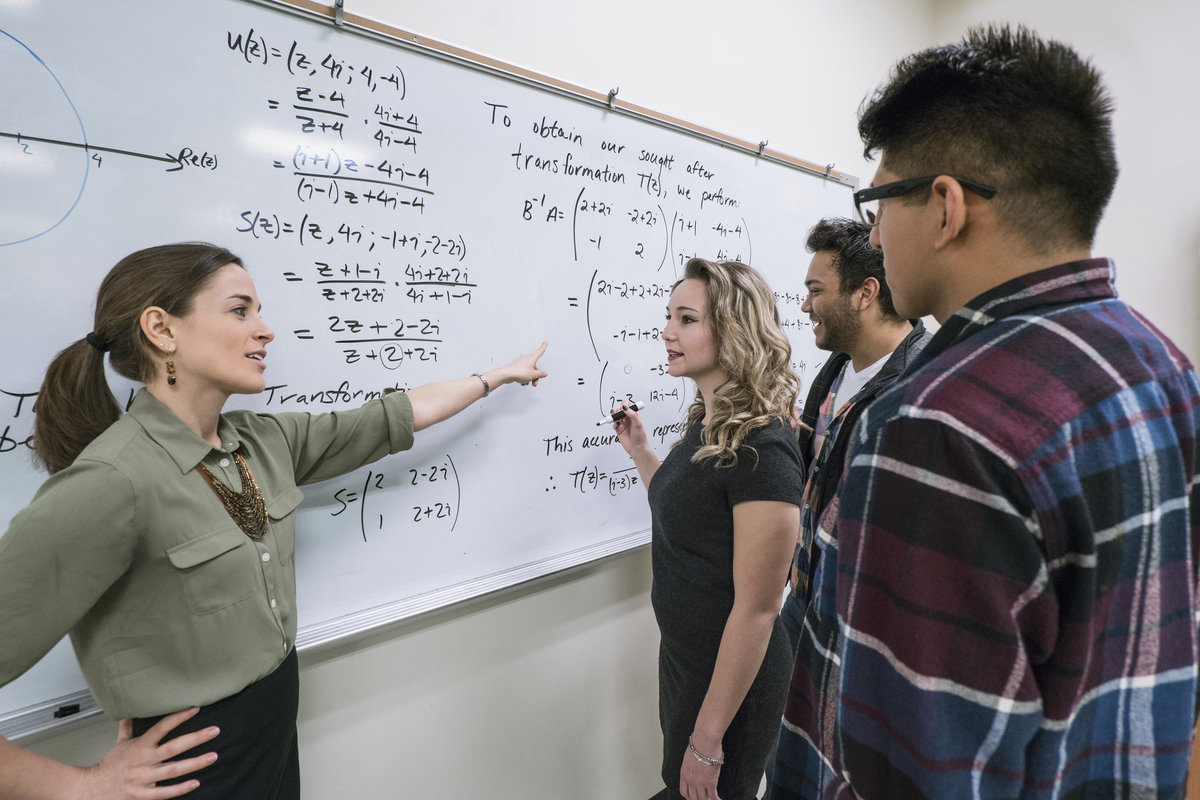 2
4
Re(z)
U(z) = (z, 4i; 4, -4)
= z-4/z+4 · 4i+4/4i-4
= (i+1)z-4i-4/(i-1)z+4i-4
S(z) = (z, 4i; -1+i, -2-2i)
= z+1-i/z+2+2i · 4i+2+2i/4i+1-i
= 2z+2-2i/z+2+2i
Transformation
S = (2 2-2i
1 2+2i)
To obtain our sought after
transformation T(z), we perform:
B⁻¹A = (2+2i -2+2i
-1 2) (i+1 -4i-4
i-1 4i-4)
= (2i-2+2+2
-i-1+2
= ( -32
i-3 12i-4)
This accurately
∴ T(z) = /(i-3)z